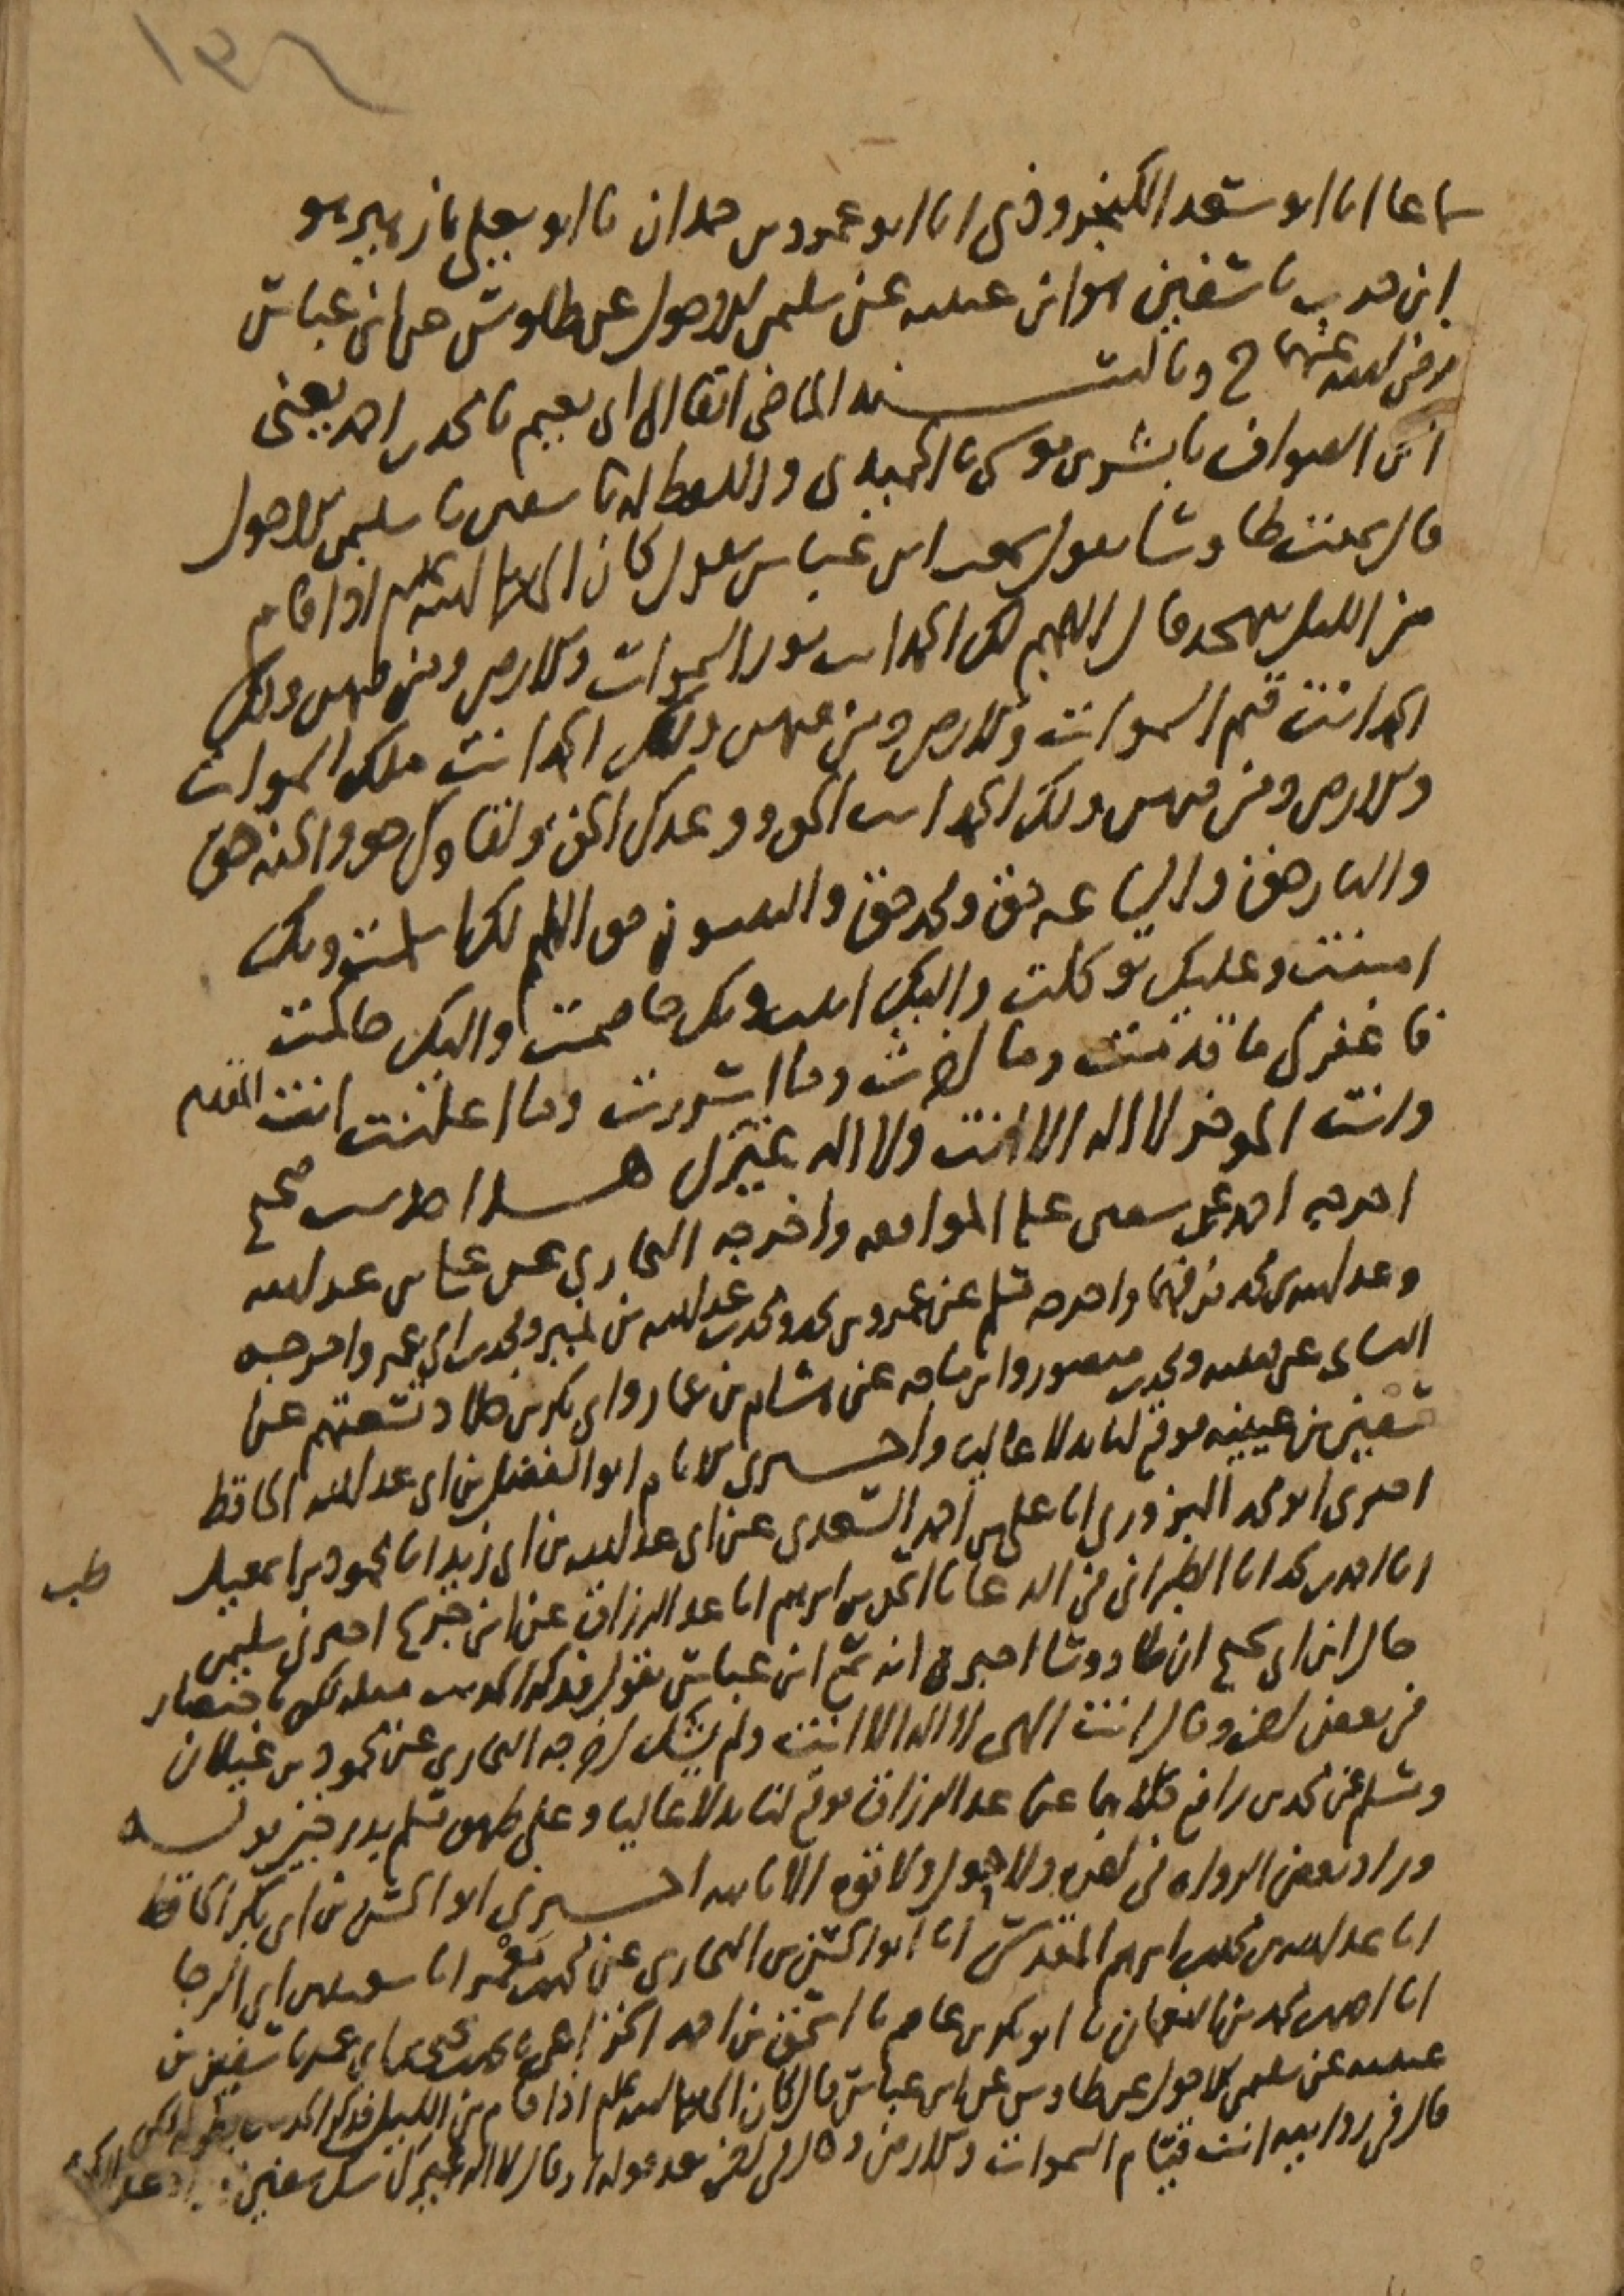 ١٣٦
سماعا انا ابو سعد الكنجرودى انا ابو عمرو بن حمدان نا ابو يعلى نا زهير هو
ابن حرب نا سفين هو ابن عيينه عن سليمن الاحول عن طاوس عن ابن عباس
رضى الله عنهما ح وبالسند الماضى انفا الى ابى نعيم نا محمد بن احمد يعنى
ابن الصواف نا بشر بن موسى نا الحميدى واللفظ له نا سفين نا سليمن الاحول
قال سمعت طاوسا يقول سمعت ابن عباس يقول كان النبى صلى الله عليه وسلم اذا قام
من الليل يتهجد قال اللهم لك الحمد انت نور السموات والارض ومن فيهن ولك
الحمد انت قيم السموات والارض ومن فيهن ولك الحمد انت ملك السموات
والارض ومن فيهن ولك الحمد انت الحق ووعدك الحق ولقاوك حق والجنه حق
والنار حق والساعه حق ومحمد حق والنبيون حق اللهم لك اسلمت وبك
امنت وعليك توكلت واليك انبت وبك خاصمت واليك حاكمت
فاغفر لى ما قدمت وما اخرت وما اسررت وما اعلنت انت المقدم
وانت الموخر لا اله الا انت ولا اله غيرك هذا حديث صحيح
اخرجه احمد عن سفين على الموافقه واخرجه البخارى عن على بن عبد الله
وعبد الله بن محمد فرقهما واخرجه مسلم عن عمرو بن محمد ومحمد بن عبد الله بن نمير ومحمد بن ابى عمر واخرجه
النساى عن قتيبه ومحمد بن منصور وابن ماجه عن هشام بن عمار وابى بكر بن خلاد تسعتهم عن
سفين بن عيينه فوقع لنا بدلا عاليا واخبرنى الامام ابو الفضل بن ابى عبد الله الحافظ
اخبرنى ابو محمد البزورى انا على بن احمد السعدى عن ابى عبد الله بن ابى زيد انا محمود بن اسمعيل
طب
انا احمد بن محمد انا الطبرانى فى الدعا نا اسحق بن ابرهيم انا عبد الرزاق عن ابن جريج اخبرنى سليمن
قال ابن ابى نجيح ان طاووسا اخبره انه سمع ابن عباس يقول فذكر الحديث مثله لكن باختصار
فى بعض لفظ وقال انت الهى لا اله الا انت ولم يشك اخرجه البخارى عن محمود بن غيلان
ومسلم عن محمد بن رافع كلاهما عن عبد الرزاق فوقع لنا بدلا عاليا وعلى طريق مسلم بدرجتين
وزاد بعض الرواه فى اخره ولا حول ولا قوه الا بالله اخبرنى ابو الحسن بن ابى بكر الحافظ
انا عبد الله بن محمد بن ابرهيم المقدسى انا ابو الحسن بن البخارى عن محمد بن معمر انا سعيد بن ابى الرجا
انا احمد بن محمد بن النعمان نا ابو بكر بن عاصم نا اسحق بن احمد الخزاعى نا محمد بن يحيى بن ابى عمر نا سفين بن
عيينه عن سليمن الاحول عن طاوس عن ابن عباس قال كان النبى صلى الله عليه وسلم اذا قام من الليل فذكر الحديث بطوله لكن
قال فى روايته انت قيام السموات والارض وقال فى اخره بعد قوله او قال لا اله غيرك شك سفين